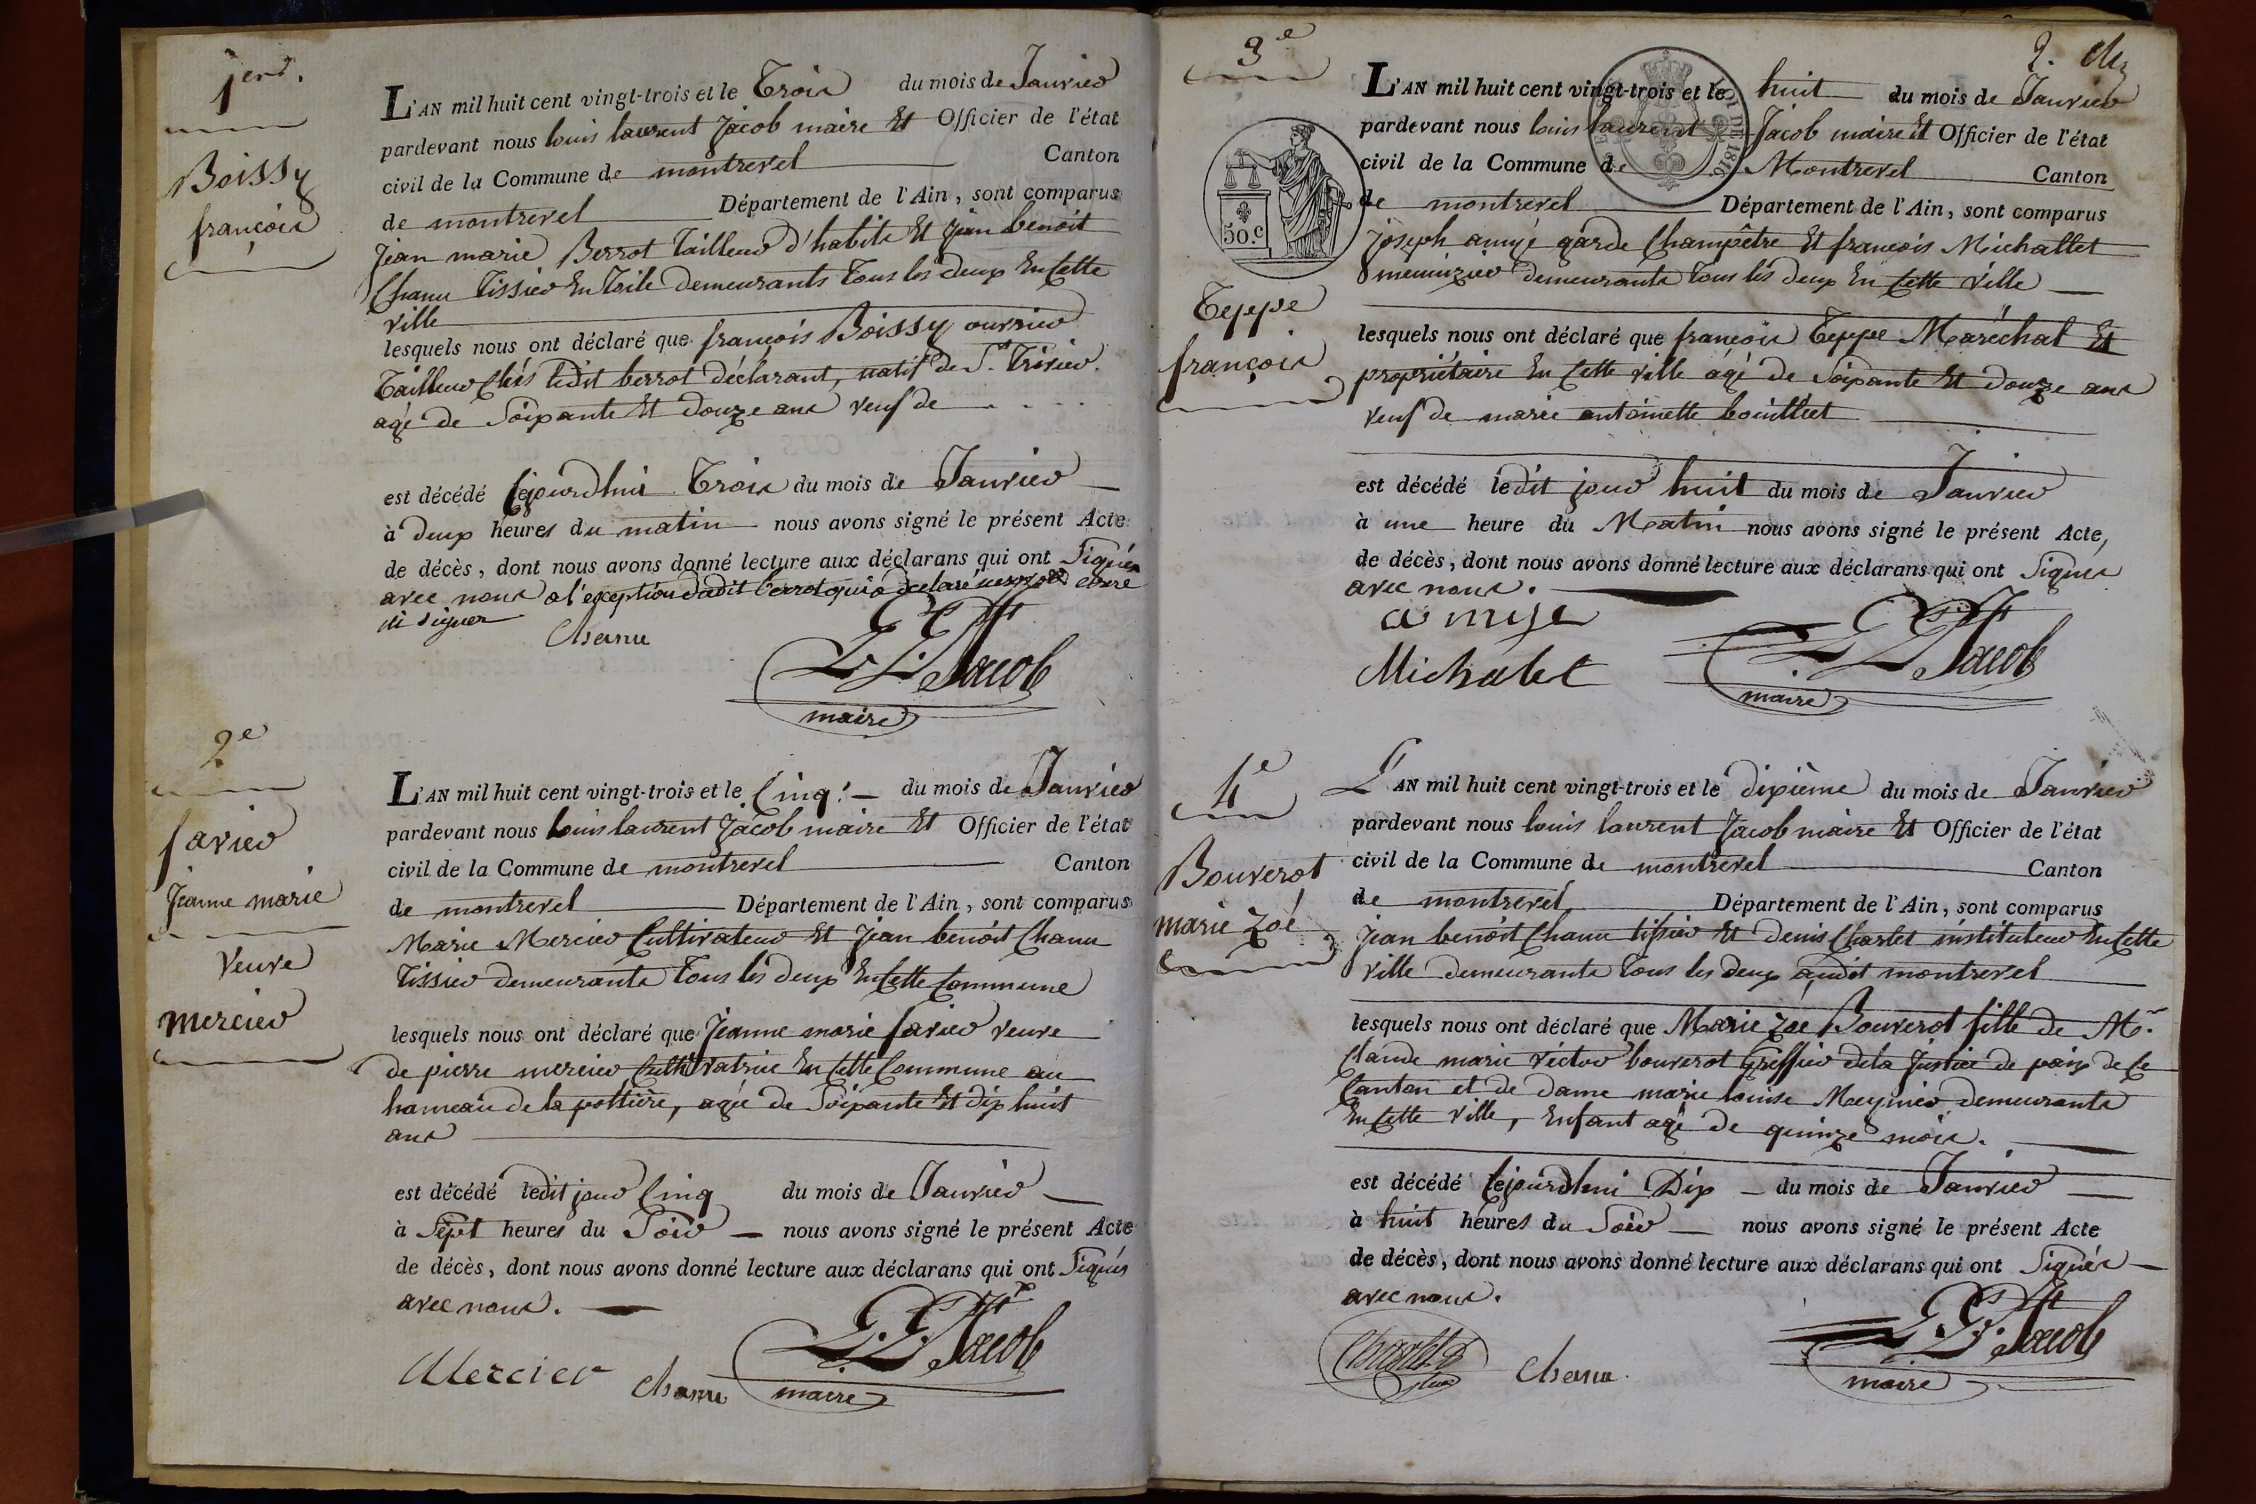 1er.
Boissy
françois
L'AN mil huit cent vingt-trois et le Trois du mois de Janvier
pardevant nous louis laurent Jacob maire Et Officier de l'état
civil de la Commune de montrevel Canton
de montrevel Département de l'Ain, sont comparus
Jean marie Berrot Tailleur d'habits Et Jean benoit
Chanu Tissier En Toile demeurants Tous les deux En Cette
ville
lesquels nous ont déclaré que françois Boissy ouvrier
Tailleur Chés ledit berrot déclarant, natif de St. Trivier.
agé de Soixante Et douze ans veuf de
est décédé Cejourdhui Trois du mois de Janvier
à deux heures du matin nous avons signé le présent Acte
de décès, dont nous avons donné lecture aux déclarans qui ont Signés
avec nous a l'exception dudit berrot qui a declaré
ni signer
Chanu
L. L. Jacob
maire
2e
favier
Jeanne marie
veuve
mercier
L'AN mil huit cent vingt-trois et le Cinq du mois de Janvier
pardevant nous louis laurent Jacob maire Et Officier de l'état
civil de la Commune de montrevel Canton
de montrevel Département de l'Ain, sont comparus
Marie Mercier Cultivateur Et Jean benoit Chanu
Tissier demeurants Tous les deux En Cette Commune
lesquels nous ont déclaré que Jeanne marie favier veuve
de pierre mercier Cultivatrice En Cette Commune au
hameau de la pottière, agée de Soixante Et dix huit
ans
est décédé ledit jour Cinq du mois de Janvier
à Sept heures du Soir nous avons signé le présent Acte
de décès, dont nous avons donné lecture aux déclarans qui ont Signés
avec nous.
Mercier Chanu
L. L. Jacob
maire
2.
3e
50.c
Teppe
françois
L'AN mil huit cent vingt-trois et le huit du mois de Janvier
pardevant nous louis laurent Jacob maire Et Officier de l'état
civil de la Commune de Montrevel Canton
de montrevel Département de l'Ain, sont comparus
Joseph garde Champêtre Et françois Michallet
menuizier demeurants Tous les deux En Cette Ville
lesquels nous ont déclaré que françois Teppe Maréchal Et
propriétaire En Cette ville agé de Soixante Et douze ans
veuf de marie antoinette
est décédé ledit jour huit du mois de Janvier
à une heure du Matin nous avons signé le présent Acte,
de décès, dont nous avons donné lecture aux déclarans qui ont Signés
avec nous.
Michalet
L. L. Jacob
maire
4e
Bouverot
marie Zoé
L'AN mil huit cent vingt-trois et le dixième du mois de Janvier
pardevant nous louis laurent Jacob maire Et Officier de l'état
civil de la Commune de montrevel Canton
de montrevel Département de l'Ain, sont comparus
Jean benoit Chanu tissier Et denis Charlet instituteur En Cette
ville demeurants Tous les deux audit montrevel
lesquels nous ont déclaré que Marie Zoé Bouverot fille de Mr.
Claude marie victor bouverot Greffier de la Justice de paix de Ce
Canton et de dame marie louise Meynier demeurants
En Cette Ville, Enfant agé de quinze mois.
est décédé Cejourdhui Dix du mois de Janvier
à huit heures du Soir nous avons signé le présent Acte
de décès, dont nous avons donné lecture aux déclarans qui ont Signés
avec nous.
Chanu.
L. L. Jacob
maire